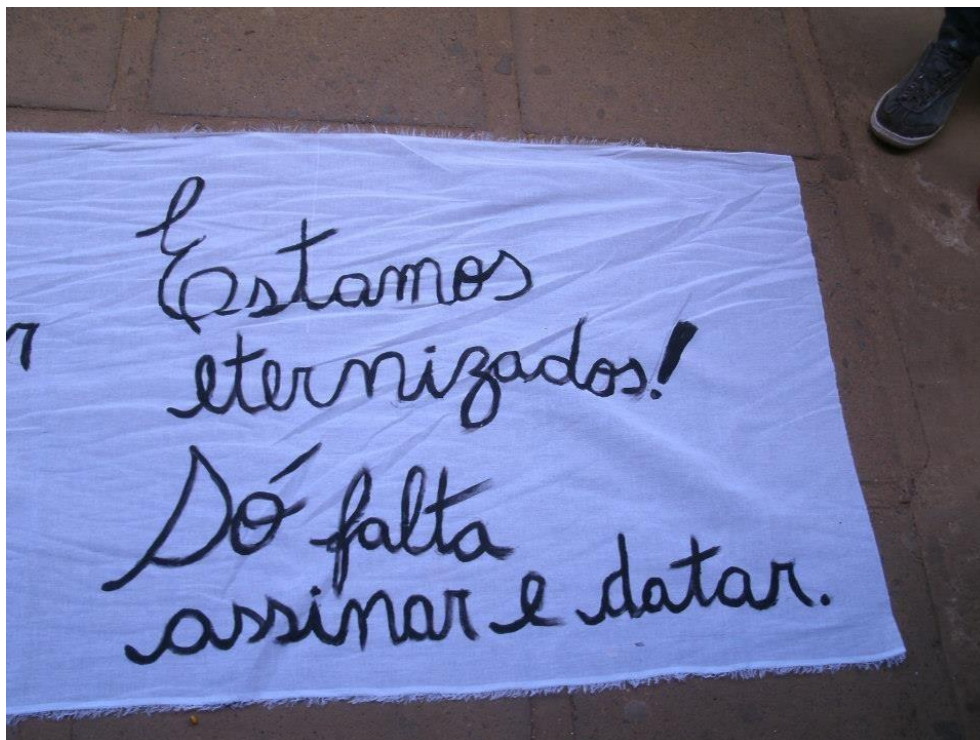 Estamos
eternizados!
Só falta
assinar e datar.